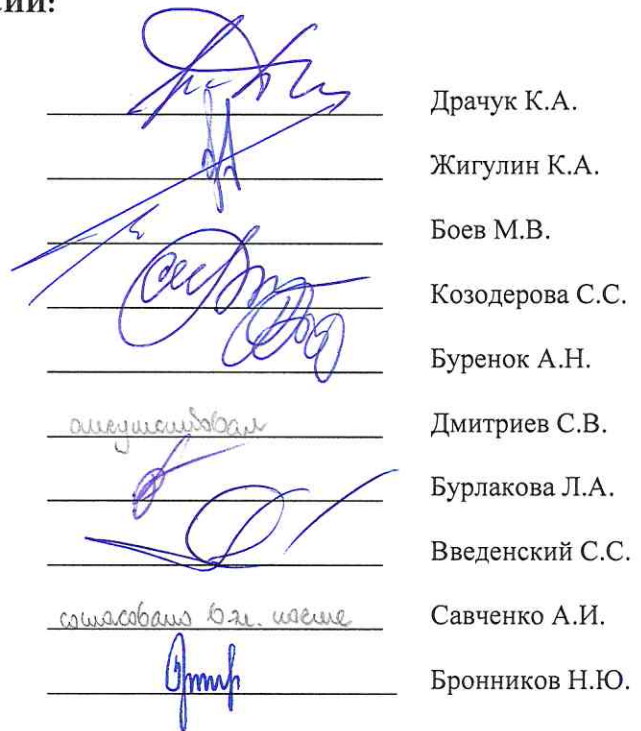 сии:
Драчук К.А.
Жигулин К.А.
Боев М.В.
Козодерова С.С.
Буренок А.Н.
отсутствовал Дмитриев С.В.
Бурлакова Л.А.
Введенский С.С.
согласовано в эл. почте Савченко А.И.
Бронников Н.Ю.